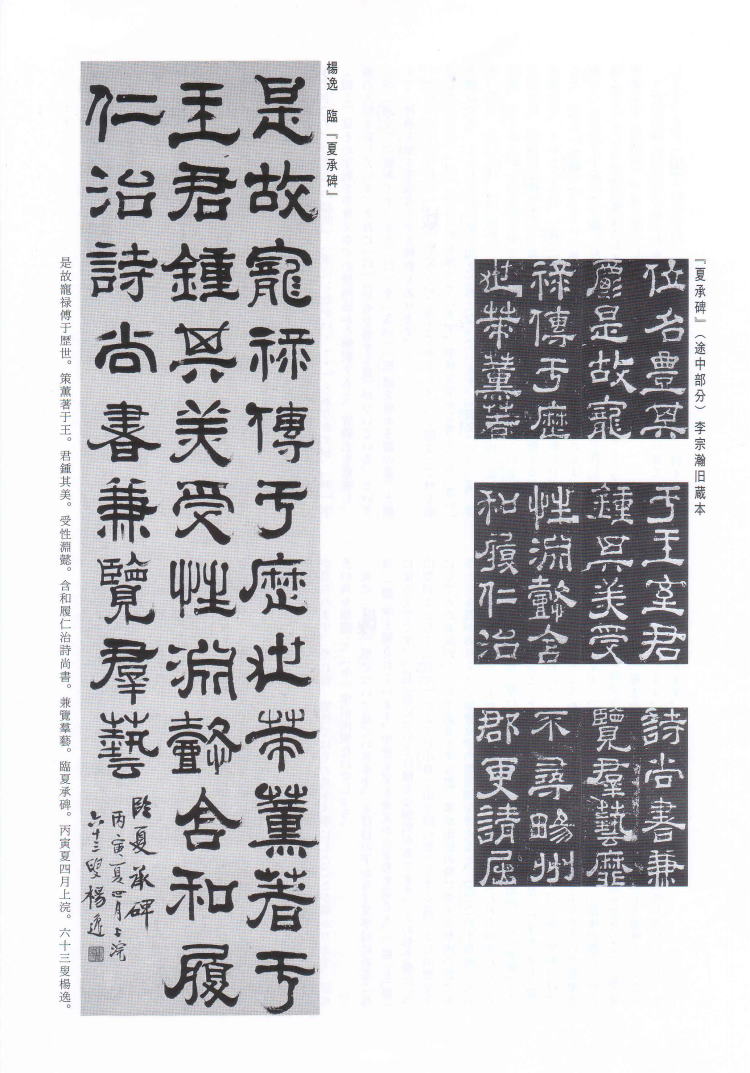 『夏承碑』（途中部分） 李宗瀚旧蔵本
位名豊其
爵是故寵
祿傳于歴
世策薫著
于王室君
鍾其美受
性淵懿含
和履仁治
詩尚書兼
覽羣藝靡
不尋暢州
郡更請屈
楊逸 臨『夏承碑』
是故寵祿傳于歴世策薫著于
王君鍾其美受性淵懿含和履
仁治詩尚書兼覽羣藝
臨夏承碑
丙寅夏四月上浣
六十三叟楊逸
是故寵禄傳于歴世。策薫著于王。君鍾其美。受性淵懿。含和履仁治詩尚書。兼覽羣藝。臨夏承碑。丙寅夏四月上浣。六十三叟楊逸。